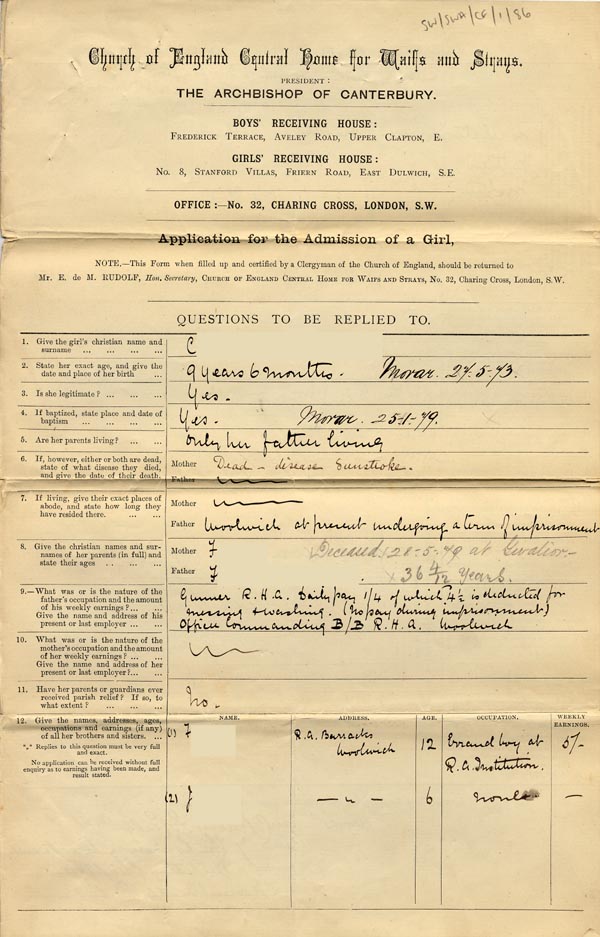 SW/SWA/CE/1/86
Church of England Central Home for Waifs and Strays.
PRESIDENT:
THE ARCHBISHOP OF CANTERBURY.
BOYS' RECEIVING HOUSE:
FREDERICK TERRACE, AVELEY ROAD, UPPER CLAPTON, E.
GIRLS' RECEIVING HOUSE:
No. 8, STANFORD VILLAS, FRIERN ROAD, EAST DULWICH, S.E.
OFFICE:—No. 32, CHARING CROSS, LONDON, S.W.
Application for the Admission of a Girl,
NOTE.—This Form when filled up and certified by a Clergyman of the Church of England, should be returned to
Mr. E. de M. RUDOLF, Hon. Secretary, CHURCH OF ENGLAND CENTRAL HOME FOR WAIFS AND STRAYS, No. 32, Charing Cross, London, S.W.
QUESTIONS TO BE REPLIED TO.
1. Give the girl's christian name and
surname ... ... ... ...
C
2. State her exact age, and give the
date and place of her birth ...
9 years 6 months. Morar. 27-5-73.
3. Is she legitimate? ... ... ...
Yes.
4. If baptized, state place and date of
baptism ... ... ... ...
Yes. Morar 25-1-79.
5. Are her parents living? ... ...
only her father living
6. If, however, either or both are dead,
state of what disease they died,
and give the date of their death.
Mother Dead - disease Sunstroke.
Father
7. If living, give their exact places of
abode, and state how long they
have resided there. ... ...
Mother
Father Woolwich at present undergoing a term of imprisonment
8. Give the christian names and sur-
names of her parents (in full) and
state their ages ... ... ...
Mother F Deceased 28-5-79 at Gwalior-
Father F 36 4/12 Years.
9.—What was or is the nature of the
father's occupation and the amount
of his weekly earnings? ... ...
Give the name and address of his
present or last employer ... ...
Gunner R.H.A. Daily pay 1/4 of which 4½ is deducted for
messing & washing. (No pay during imprisonment)
Officer Commanding B/B R.H.A. Woolwich
10. What was or is the nature of the
mother's occupation and the amount
of her weekly earnings? ... ...
Give the name and address of her
present or last employer?... ...
11. Have her parents or guardians ever
received parish relief? If so, to
what extent? ... ... ...
No.
12. Give the names, addresses, ages,
occupations and earnings (if any)
of all her brothers and sisters. ...
*.* Replies to this question must be very full
and exact.
No application can be received without full
enquiry as to earnings having been made, and
result stated.
NAME. ADDRESS. AGE. OCCUPATION. WEEKLY EARNINGS.
(1) F R.A. Barracks Woolwich 12 Errand boy at R.A. Institution. 5/-
(2) J — " — 6 none —